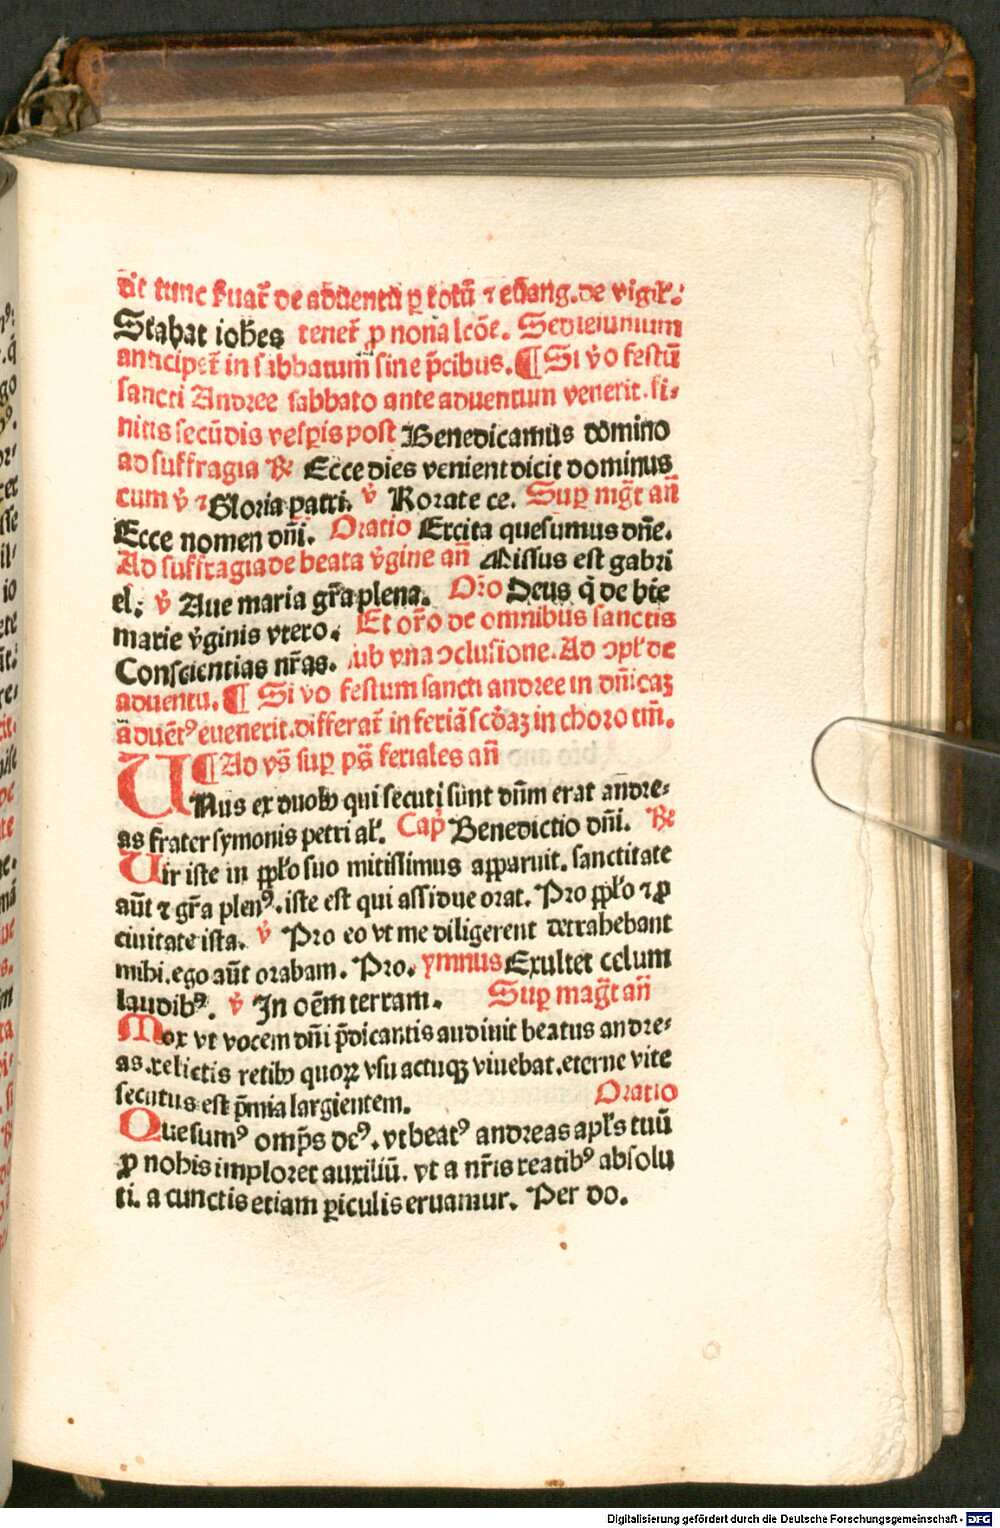 dit tunc ẜuat̄ de aduentu ꝑ totū ⁊ euang. de vigil̄.
Stabat ioh̄es tenet̄ ꝓ nona lcōe. Sed ieiunium
anticipet̄ in sabbatum sine p̄cibus. ¶ Si v̄o festū
sancti Andree sabbato ante aduentum venerit. fi⸗
nitis secūdis vesꝑis post Benedicamus domino
ad suffragia ℟ Ecce dies venient dicit dominus
cum v̄ ⁊ Gloria patri. v̄ Rorate ce. Suꝑ mḡt an̄
Ecce nomen dn̄i. Oratio Excita quesumus dn̄e.
Ad suffragia de beata v̄gine an̄ Missus est gabri
el. v̄ Aue maria gr̄a plena. Or̄o Deus q̄ de bt̄e
marie v̄ginis vtero. Et or̄o de omnibus sanctis
Conscientias nr̄as. sub vna ↄclusione. Ad ↄpl̄ de
aduentu. ¶ Si v̄o festum sancti andree in dn̄icaꝫ
aduēt⁹ euenerit. differat̄ in feriā scd̄aꝫ in choro tm̄.
¶ Ad vs̄ suꝑ ps̄ feriales an̄
Unus ex duobꝰ qui secuti sunt dn̄m erat andre⸗
as frater symonis petri al̄. Cap̄ Benedictio dn̄i. ℟
Uir iste in ppl̄o suo mitissimus apparuit. sanctitate
aūt ⁊ gr̄a plen⁹. iste est qui assidue orat. Pro ppl̄o ⁊ ꝓ
ciuitate ista. v̄ Pro eo vt me diligerent detrahebant
mihi. ego aūt orabam. Pro. ymnus Exultet celum
laudib⁹. v̄ In oēm terram. Suꝑ maḡt an̄
Mox vt vocem dn̄i p̄dicantis audiuit beatus andre⸗
as. relictis retibꝰ quoꝝ vsu actuqꝫ viuebat. eterne vite
secutus est p̄mia largientem. Oratio
Quesum⁹ omp̄s de⁹. vt beat⁹ andreas apl̄s tuū
ꝓ nobis imploret auxiliū. vt a nr̄is reatib⁹ absolu
ti. a cunctis etiam ꝑiculis eruamur. Per do.
Digitalisierung gefördert durch die Deutsche Forschungsgemeinschaft - DFG